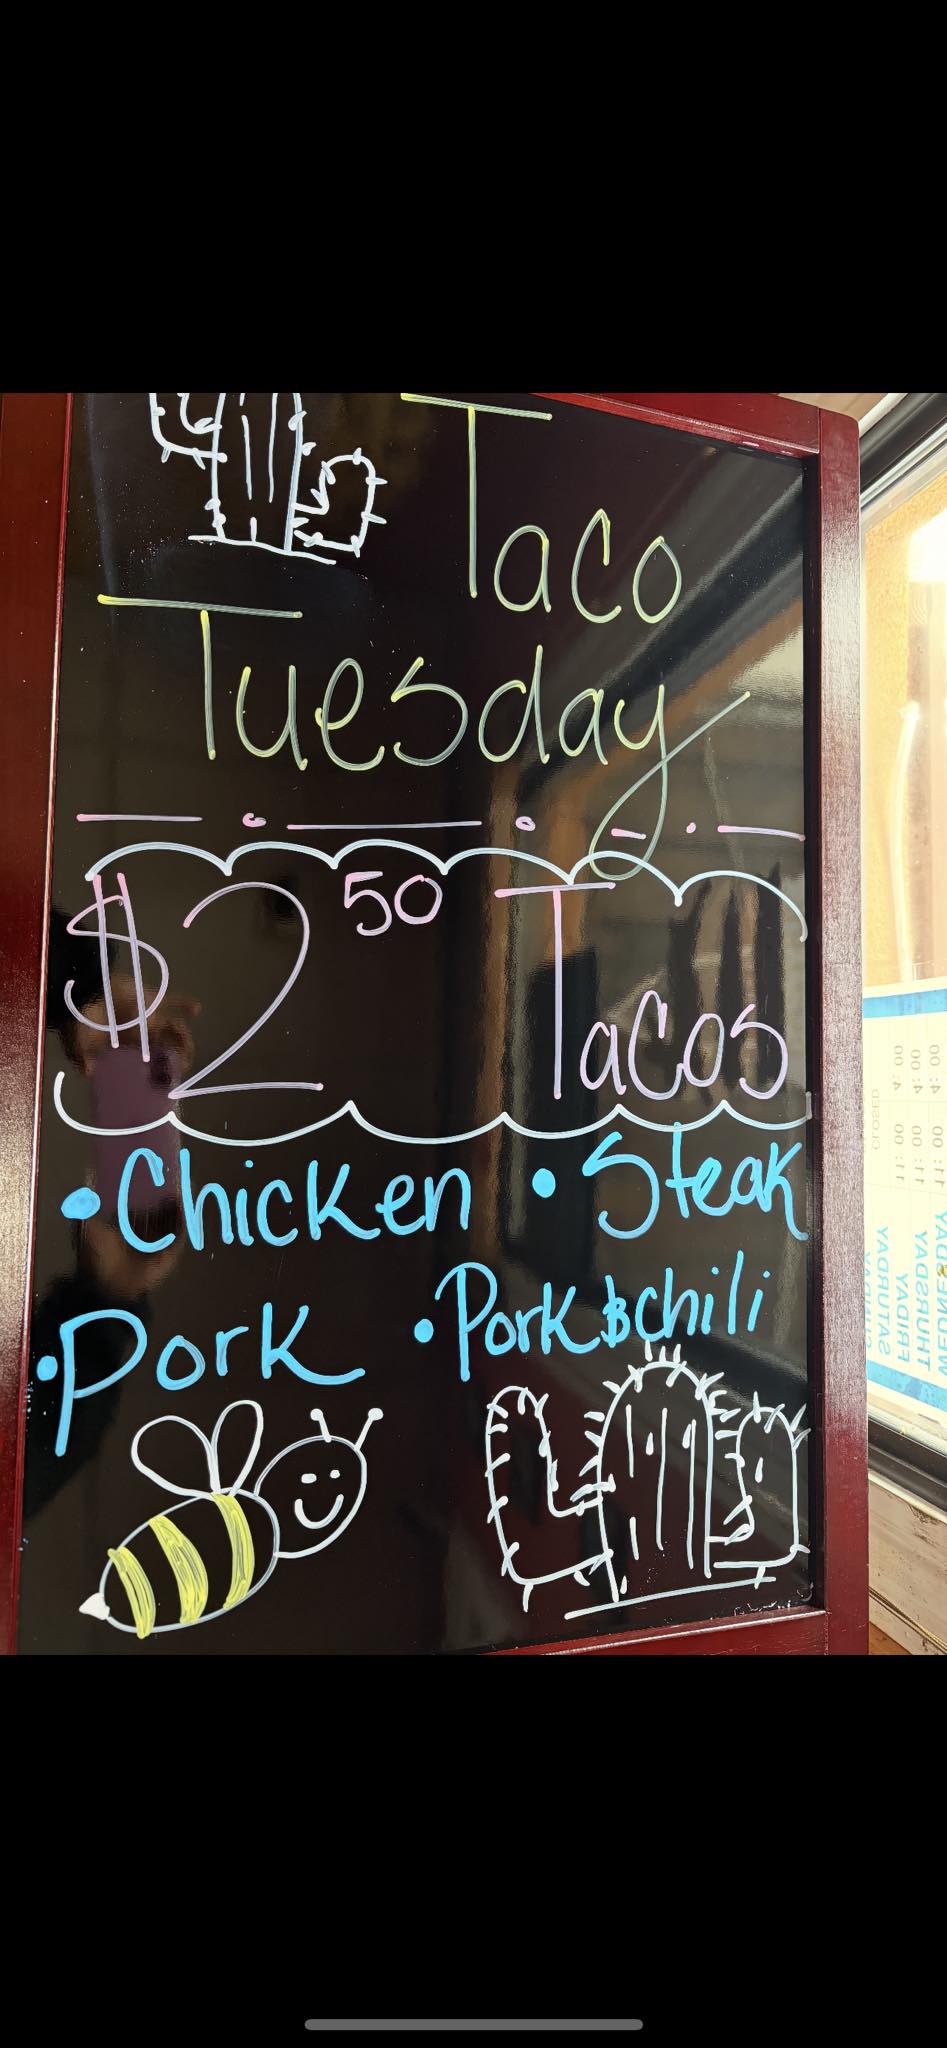 Taco
Tuesday
$2 50 Tacos
• Chicken • Steak
• Pork • Pork & chili
CLOSED
11:00 4:00
11:00 4:00
SATURDAY
FRIDAY
THURSDAY